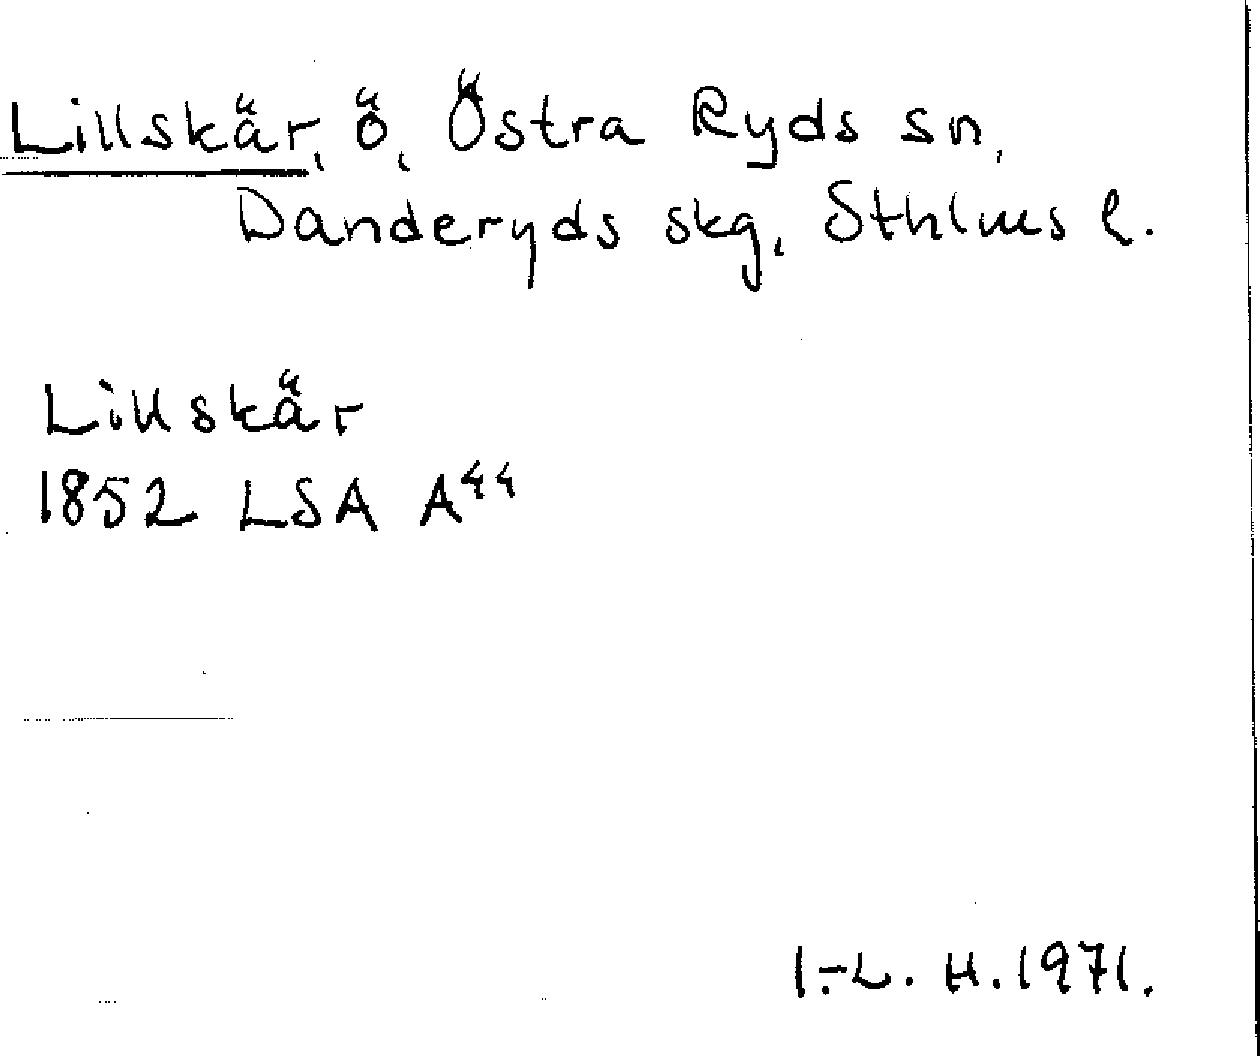 Lillskär, ö, Östra Ryds sn,
Danderyds skg, Sthlms l.
Lillskär
1852 LSA A⁴⁴
I.-L. H. 1971.